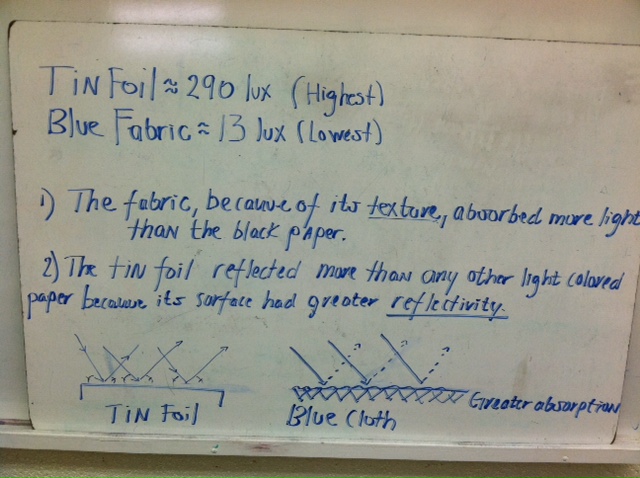 Tin Foil ≈ 290 lux (Highest)
Blue Fabric ≈ 13 lux (Lowest)
1) The fabric, because of its texture, absorbed more light
than the black paper.
2) The tin foil reflected more than any other light colored
paper because its surface had greater reflectivity.
Tin Foil
Blue Cloth
Greater absorption